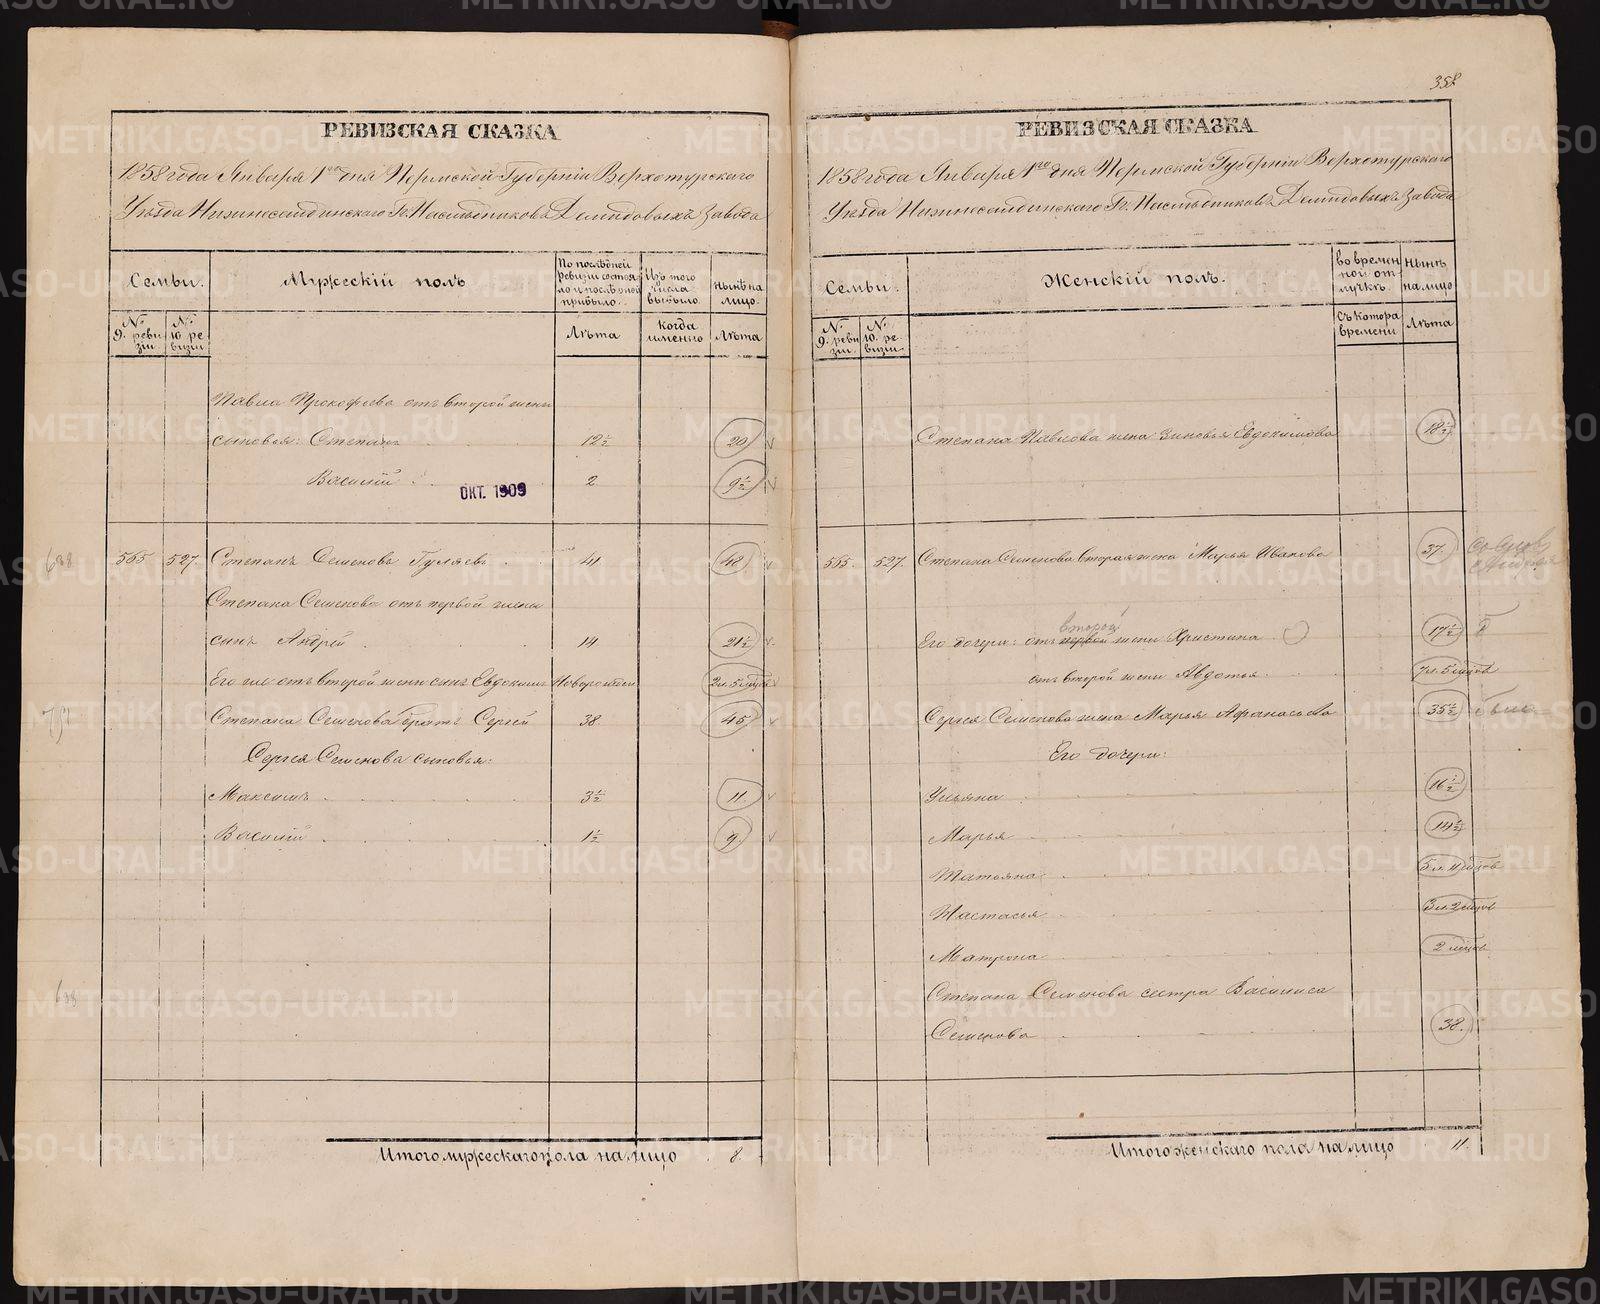 358
РЕВИЗСКАЯ СКАЗКА
1858 года Января 1го дня Пермской Губерніи Верхотурскаго
Уѣзда Нижнесалдинскаго Гг. Наслѣдниковъ Демидовыхъ Завода
Семьи.
Мужескій полъ
По послѣдней ревизіи состояло и послѣ оной прибыло.
Изъ того числа выбыло.
Нынѣ на лицо.
№ 9. ревизіи
№ 10 ревизіи
Лѣта
когда именно
Лѣта
Павла Прокофьева отъ второй жены
сыновья: Степанъ 12½ 20
Василій 2 9½
ОКТ. 1909
565 527. Степанъ Семеновъ Гуляевъ 41 48
Степана Семенова отъ первой жены
сынъ Андрей 14 21½
Его же отъ второй жены сынъ Евдокимъ Новорожден 2 л. 5 мцов
Степана Семенова братъ Сергей 38 45
Сергея Семенова сыновья:
Максимъ 3½ 11.
Василій 1½ 9
Итого мужескаго пола на лицо 8.
РЕВИЗСКАЯ СКАЗКА
1858 года Января 1го дня Пермской Губерніи Верхотурскаго
Уѣзда Нижнесалдинскаго Гг. Наслѣдниковъ Демидовыхъ Завода
Семьи.
Женскій полъ.
во временной отлучкѣ.
Нынѣ на лицо
№ 9. ревизіи
№ 10. ревизіи
Съ котора времени
Лѣта
Степана Павлова жена Зиновья Евдокимова 18½
565. 527. Степана Семенова вторая жена Марья Иванова 37.
второй
Его дочери: отъ первой жены Христина 17½
отъ второй жены Авдотья 7 л. 5 мцов
Сергея Семенова жена Марья Афанасьева 35½
Его дочери:
Ульяна 16½
Марья 14½
Татьяна 5 л. 11 мцов
Настасья 3 л. 2 мцов
Матрона 2 мцов
Степана Семенова сестра Василиса
Семенова 38.
Итого женскаго пола на лицо 11.
METRIKI.GASO-URAL.RU